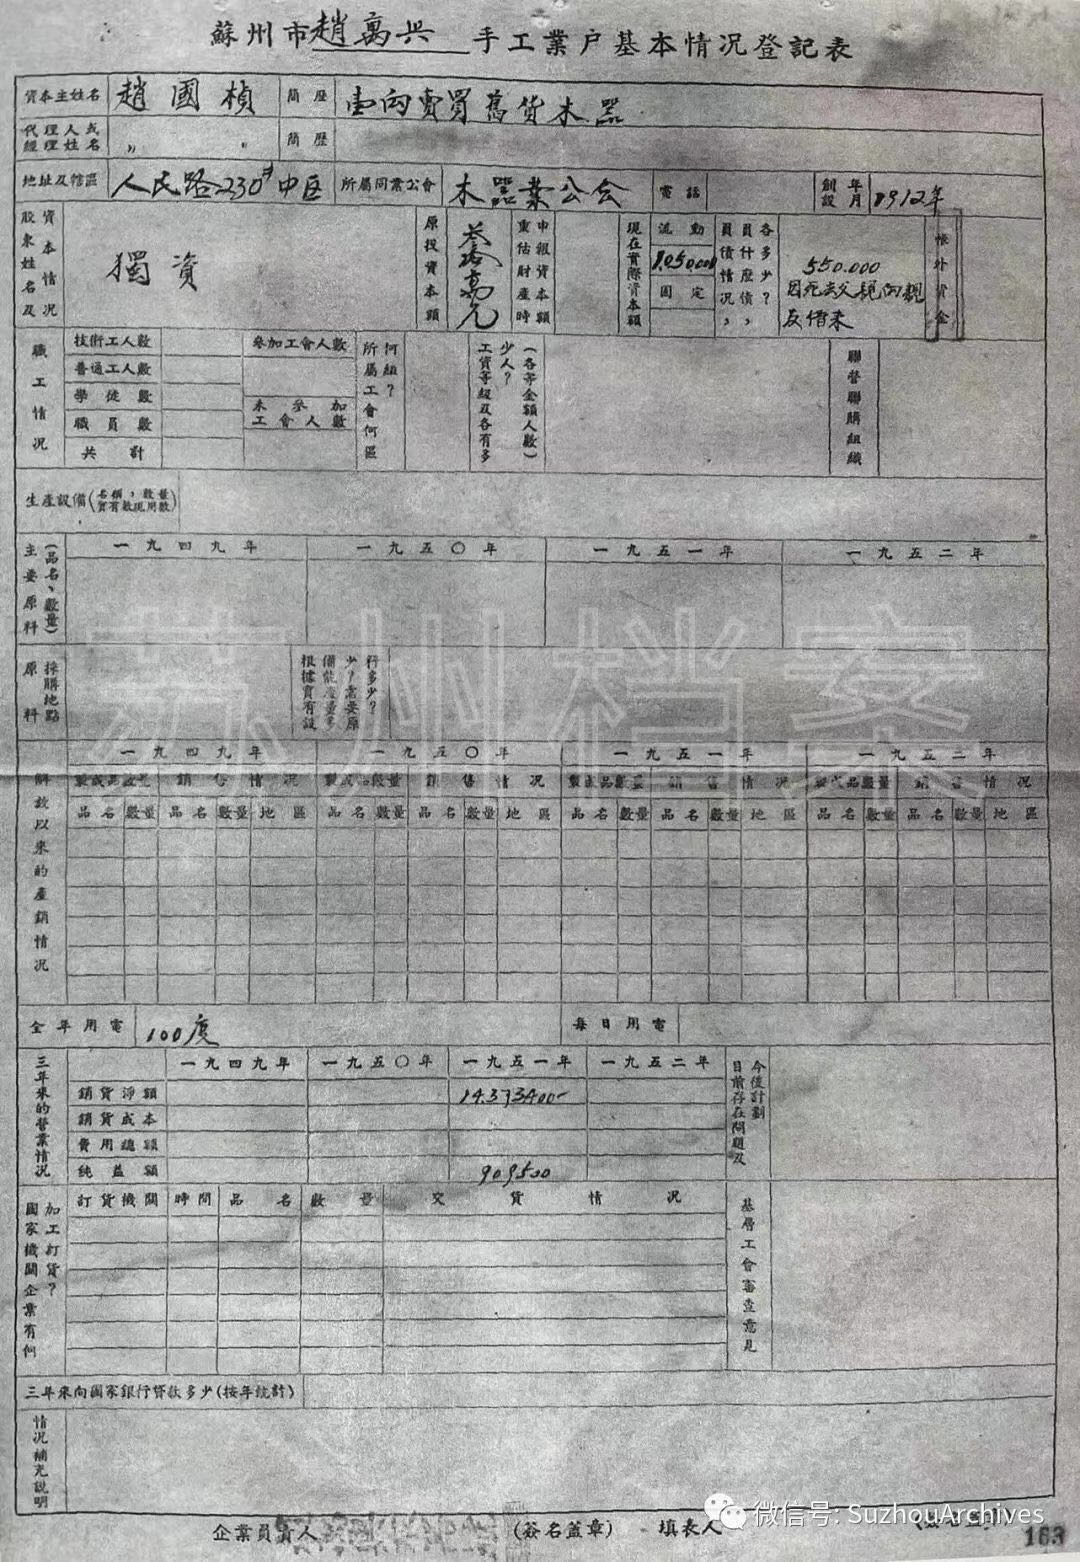 蘇州市趙萬興手工業户基本情况登記表
資本主姓名 趙國楨 簡歷 壹向賣買舊貨木器
代理人或經理姓名 〃 〃 簡歷
地址及轄區 人民路230號中區 所屬同業公會 木器業公会 電話 創設年月 1912年
資本情况股東姓名及 獨資 原投資本額 叁拾萬元 申報資本額重估財產時 現在實際資本額 流動 1.050000 固定 各多少?員什麼債,員債情况, 550.000 因死去父親向親友借來 帳外資金
職工情况
技術工人數 參加工會人數
普通工人數
學徒數 未參加工會人數
職員數
共計
何組?所屬工會何區
(各等金額人數)少人?工資等級及各有多
聯營聯購組織
生產設備(名稱,數量實有數現用數)
主要原料(品名、數量) 一九四九年 一九五〇年 一九五一年 一九五二年
原料採購地點 行多少?少?需要原備能產量多根據實有設
解放以來的產銷情况
一九四九年 一九五〇年 一九五一年 一九五二年
製成品數量 銷售情况 製成品數量 銷售情况 製成品數量 銷售情况 製成品數量 銷售情况
品名 數量 品名 數量 地區 品名 數量 品名 數量 地區 品名 數量 品名 數量 地區 品名 數量 品名 數量 地區
全年用電 100度 每日用電
三年來的營業情况 一九四九年 一九五〇年 一九五一年 一九五二年 今後計劃目前存在問題及
銷貨淨額 14.373400-
銷貨成本
費用總額
純益額 909500
加工訂貨?國家機關企業有何
訂貨機關 時間 品名 數量 交貨情况
基層工會審查意見
三年來向國家銀行貸款多少(按年統計)
情况補充說明
企業負責人 (簽名蓋章) 填表人
163
苏州档案
微信号: SuzhouArchives